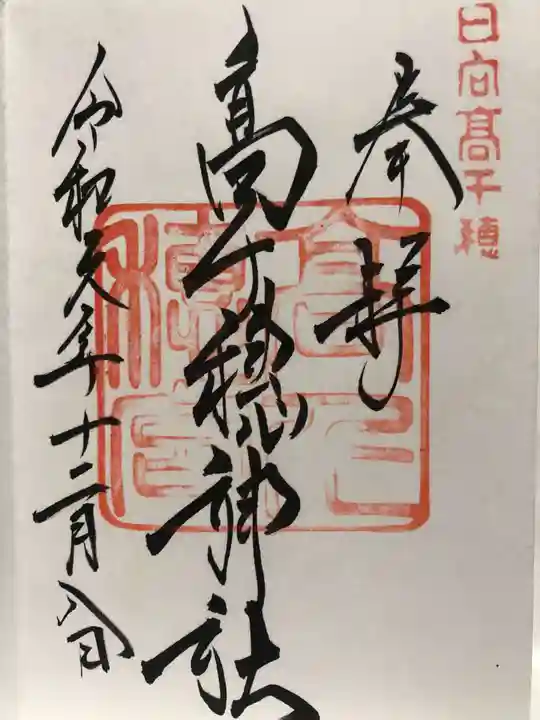 日向髙千穂
奉拝
高千穂神社
令和元年十二月八日